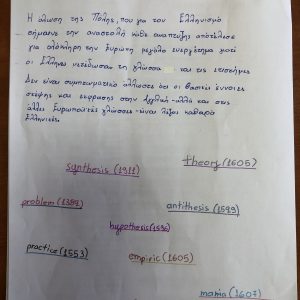 Η άλωση της Πόλης, που για τον Ελληνισμό
σήμαινε την αναστολή κάθε αναπτυξης αποτέλεσε
για ολόκληρη την Ευρώπη μεγάλο ευεργέτημα γιατί
οι Έλληνες μετέδωσαν τη γλώσσα και τις επιστήμες
Δεν είναι συμπτωματικό άλλωστε ότι οι βασικές έννοιες
σκέψης και έκφρασης στην Αγγλική-αλλά και στις
άλλες Ευρωπαϊκές γλώσσες-είναι λέξεις καθαρά
ελληνικές.
synthesis (1911)
theory (1605)
problem (1382)
antithesis (1599)
hypothesis (1596)
practice (1553)
empiric (1605)
mania (1607)